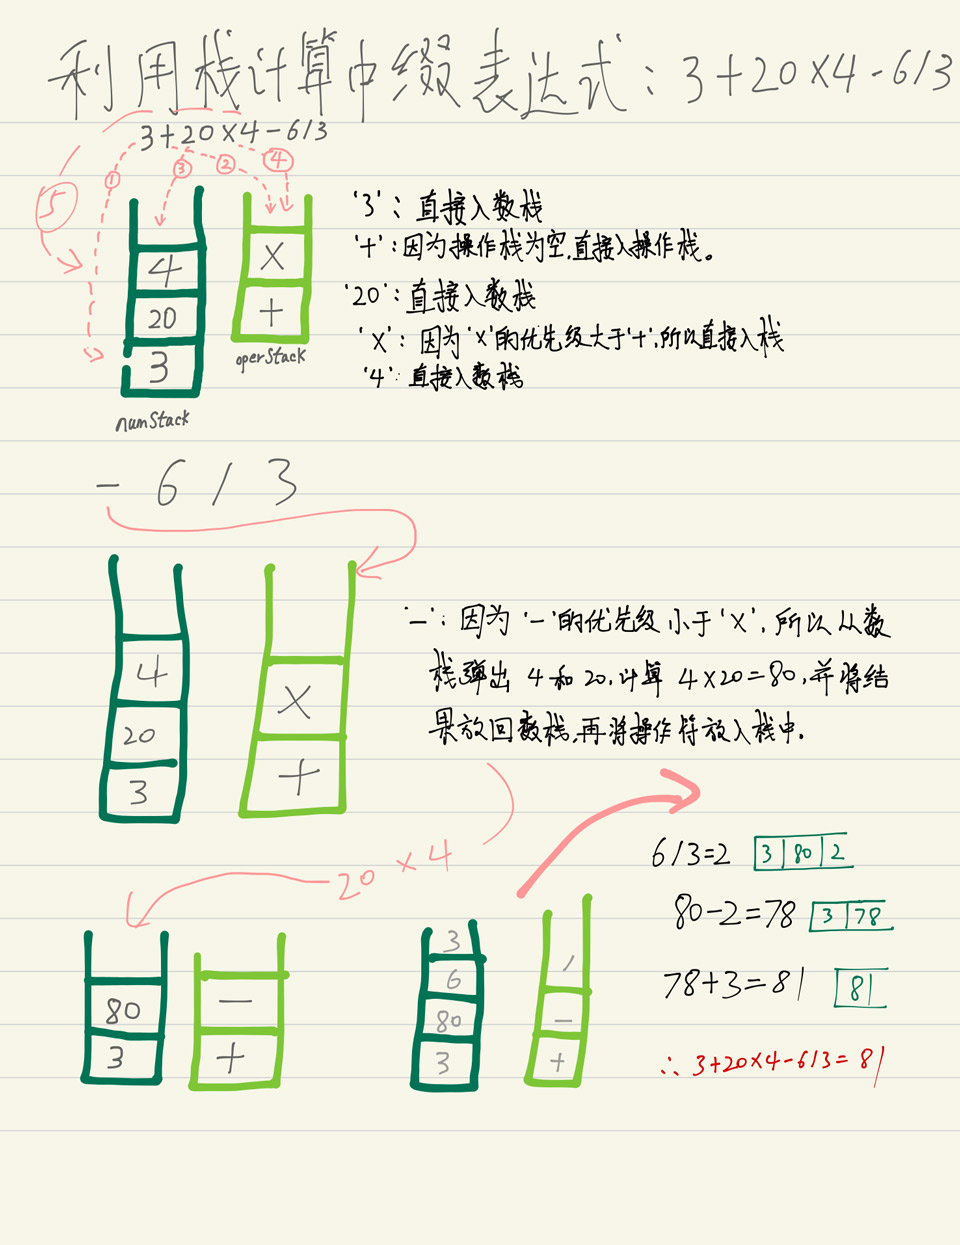 利用栈计算中缀表达式：3+20×4-6/3
3+20×4-6/3
① ③ ② ④
5
4
20
3
numStack
×
+
operStack
'3'：直接入数栈
'+'：因为操作栈为空,直接入操作栈。
'20'：直接入数栈
'×'：因为'×'的优先级大于'+',所以直接入栈
'4'：直接入数栈
- 6 / 3
4
20
3
×
+
'-'：因为'-'的优先级小于'×',所以从数
栈弹出 4和20,计算 4×20=80,并将结
果放回数栈,再将操作符放入栈中.
20×4
80
3
-
+
3
6
80
3
/
-
+
6/3=2 3|80|2
80-2=78 3|78
78+3=81 81
∴3+20×4-6/3=81